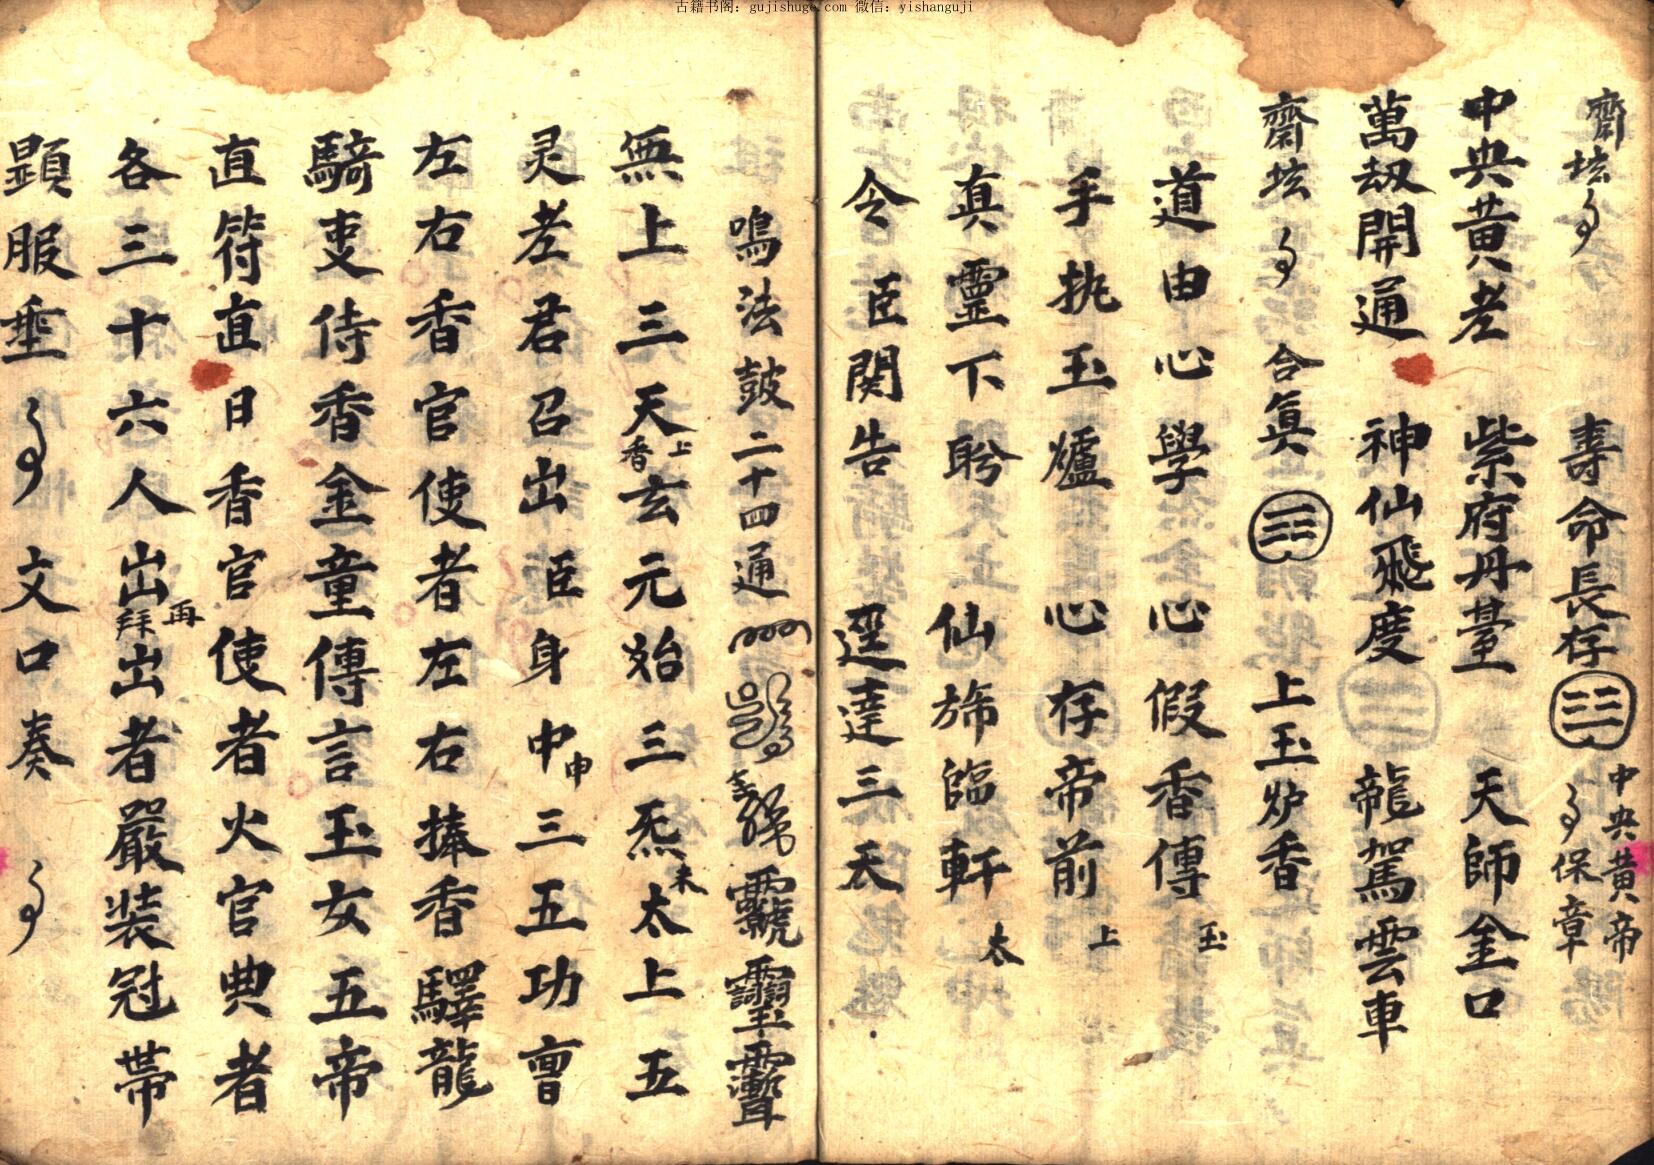 古籍书阁：gujishuge.com 微信：yishanguji
齋坛 壽命長存 保章
中央黃帝
中央黄老 紫府丹臺 天師金口
萬刼開通 神仙飛度 龍駕雲車
齋坛 合真 上玉炉香
道由心學 心假香傳 玉
手执玉爐 心存帝前 上
真靈下盻 仙旆臨軒 太
令臣関告 逕達三天
鳴法鼓二十四通
無上三天玄元始三炁太上五
上香 末
灵老君召出臣身中三五功曺
申
左右香官使者左右捧香驛龍
騎吏侍香金童傳言玉女五帝
直符直日香官使者火官典者
各三十六人出出者嚴装冠帯
再拜
顕服垂 文口奏